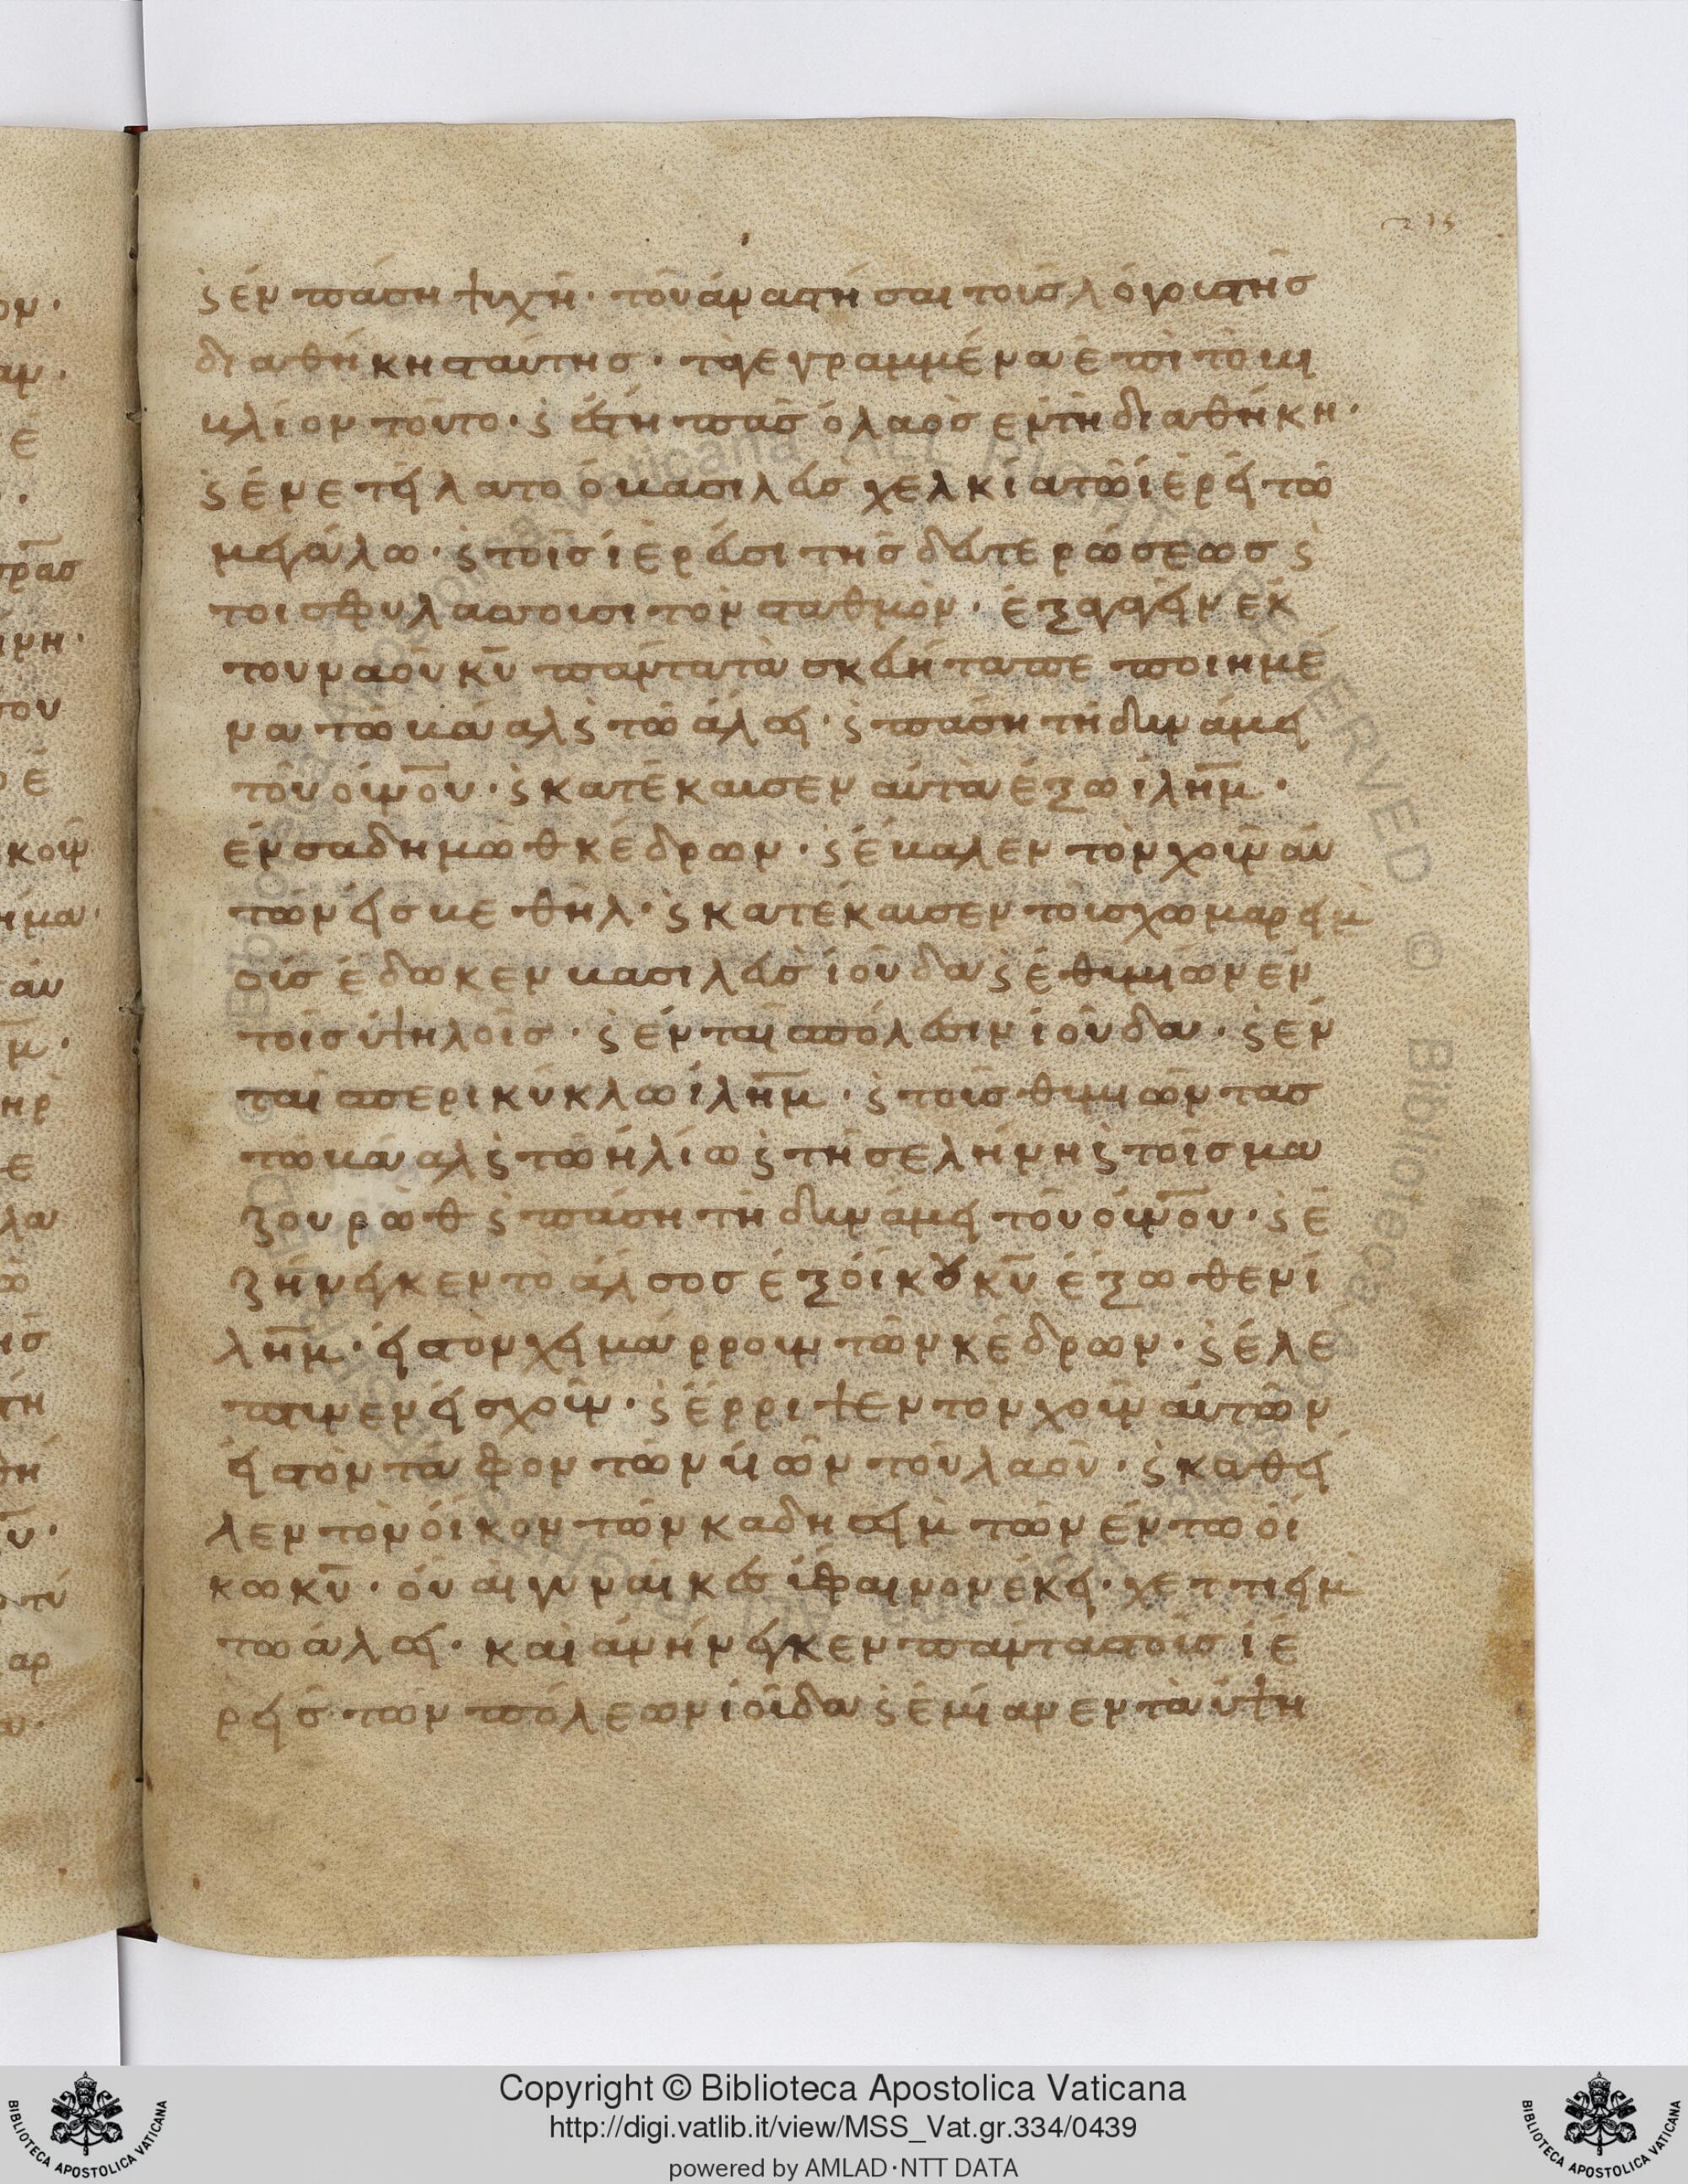 215
ϛ ἐν πάση ψυχῆ· τοῦ ἀναστῆσαι τοῖς λόγοις τῆς
διαθήκης ταύτης· τὰ γεγραμμένα ἐπὶ τὸ βι
βλίον τοῦτο· ϛ ἔστη πᾶς ὁ λαὸς ἐν τῆ διαθήκη·
ϛ ἐνετείλατο ὁ βασιλεὺς χελκία τῶ ἱερεῖ τῶ
μεγάλω· ϛ τοῖς ἱερεῦσι τῆς δευτερώσεως ϛ
τοῖς φυλάσσουσι τὸν σταθμὸν· ἐξαγαγεῖν ἐκ
τοῦ ναοῦ κ̅υ̅ πάντα τὰ σκεύη τὰ πεποιημέ
να τῶ βάαλ ϛ τῶ ἄλσει· ϛ πάση τῆ δυνάμει
τοῦ ο̅υ̅ν̅ο̅υ̅· ϛ κατέκαυσεν αὐτὰ ἔξω ἰλη̅μ̅·
ἐν σαδημὼθ κέδρων· ϛ ἔβαλεν τὸν χοῦν αὐ
τῶν εἰς βεθήλ· ϛ κατέκαυσεν τοὺς χωμαρεὶμ
οὓς ἔδωκεν βασιλεὺς ἰούδα ϛ ἐθυμίων ἐν
τοῖς ὑψηλοῖς· ϛ ἐν ταῖς πόλεσιν ἰούδα· ϛ ἐν
ταῖς περικύκλω ἰλη̅μ̅· ϛ τοὺς θυμιῶντας
τῶ βάαλ ϛ τῶ ἡλίω ϛ τῆ σελήνη ϛ τοῖς μα
ζουρὼθ ϛ πάση τῆ δυνάμει τοῦ ο̅υ̅ν̅ο̅υ̅· ϛ ἐ
ξήνεγκεν τὸ ἄλσος ἐξ οἴκου κ̅υ̅ ἔξωθεν ἰ
λη̅μ̅· εἰς τὸν χειμάρρουν τῶν κέδρων· ϛ ἐλέ
πτυνεν εἰς χοῦν· ϛ ἔρριψεν τὸν χοῦν αὐτῶν
εἰς τὸν τάφον τῶν υἱῶν τοῦ λαοῦ· ϛ καθεῖ
λεν τὸν οἶκον τῶν καδησεὶμ τῶν ἐν τῶ οἴ
κω κ̅υ̅· οὗ αἱ γυναῖκες ὕφαινον ἐκεῖ· χεττιεὶμ
τῶ ἄλσει· καὶ ἀνήνεγκεν πάντας τοὺς ἱε
ρεῖς τῶν πόλεων ἰούδα ϛ ἐμίανεν τὰ ὑψη
Copyright © Biblioteca Apostolica Vaticana
http://digi.vatlib.it/view/MSS_Vat.gr.334/0439
powered by AMLAD·NTT DATA
BIBLIOTECA APOSTOLICA VATICANA
BIBLIOTECA APOSTOLICA VATICANA